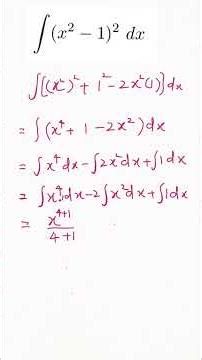 ∫(x² − 1)² dx
∫[(x²)² + 1² − 2x²(1)]dx
= ∫(x⁴ + 1 − 2x²)dx
= ∫x⁴dx − ∫2x²dx + ∫1dx
= ∫x⁴dx − 2∫x²dx + ∫1dx
= x⁴⁺¹/4+1